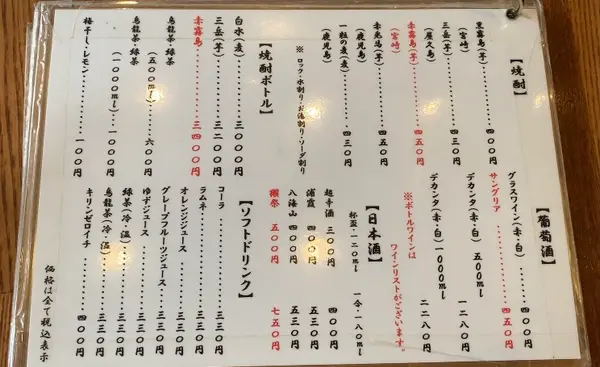 【焼酎】
黒霧島(芋)………四〇〇円
(宮崎)
三岳(芋)………四二〇円
(屋久島)
赤霧島(芋)………四五〇円
(宮崎)
赤兎馬(芋)………四五〇円
(鹿児島)
一粒の麦(麦)………四三〇円
(鹿児島)
※ロック・水割り・お湯割り・ソーダ割り
【焼酎ボトル】
白水(麦)………三〇〇〇円
三岳(芋)………三二〇〇円
赤霧島………三四〇〇円
烏龍茶・緑茶
(五〇〇ml)………六〇〇円
烏龍茶・緑茶
(一〇〇〇ml)………一〇〇〇円
梅干し・レモン………一〇〇円
【葡萄酒】
グラスワイン(赤・白)………四〇〇円
サングリア………四五〇円
デカンタ(赤・白)五〇〇ml
一二八〇円
デカンタ(赤・白)一〇〇〇ml
二二八〇円
※ボトルワインは
ワインリストがございます。
【日本酒】
杯盃・一二〇ml 一合・一八〇ml
超辛酒 三〇〇円 四〇〇円
浦霞 四〇〇円 五三〇円
八海山 四〇〇円 五三〇円
獺祭 五〇〇円 七五〇円
【ソフトドリンク】
コーラ………三三〇円
ラムネ………三三〇円
オレンジジュース………三三〇円
グレープフルーツジュース………三三〇円
ゆずジュース………三三〇円
緑茶(冷・温)………三三〇円
烏龍茶(冷・温)………三三〇円
キリンゼロイチ………四〇〇円
価格は全て税込表示